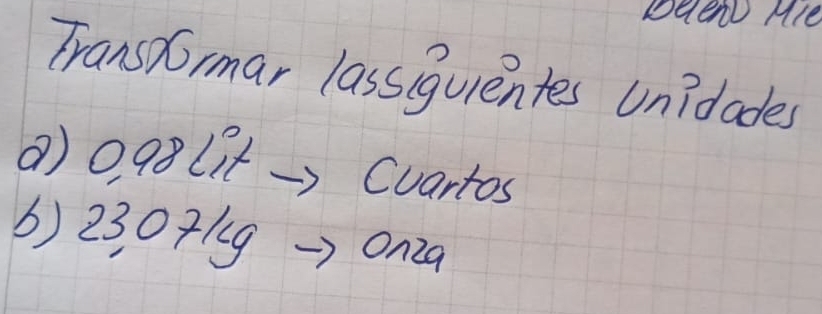 Transformar las siguientes unidades
a) 0,98 Lit → Cuartos
b) 23,07 kg → Onza